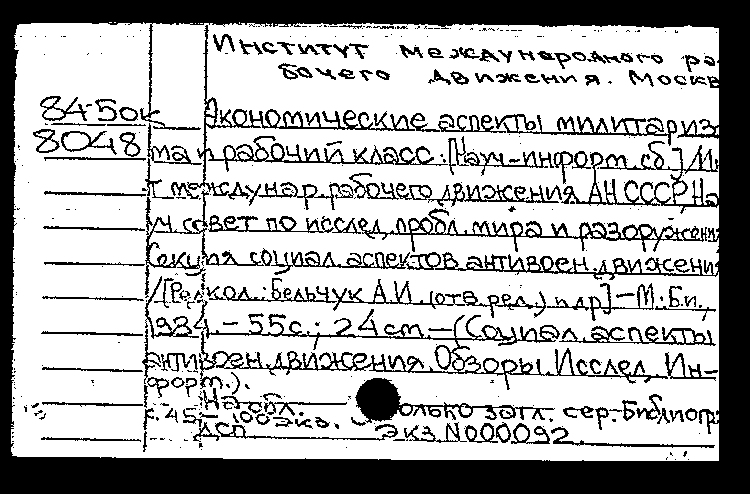 Институт международного ра-
бочего движения. Москв
84-5ок Экономические аспекты милитариз
8048 ма и рабочий класс: [Науч-информ. сб.] / Ин
т междунар. рабочего движения АН СССР, На
уч совет по исслед. пробл. мира и разоружени
Секция социал. аспектов антивоен. движени
/ [Редкол.: Бельчук А.И. (отв. ред.) и др] – М.: Б.и.,
1984. – 55 с.; 24 см. – (Социал. аспекты
антивоен. движения. Обзоры. Исслед. Ин-
форм.).
На обл. только загл. сер. – Библиогр
с. 45 – 100 экз.
ДСП Экз. N000092.